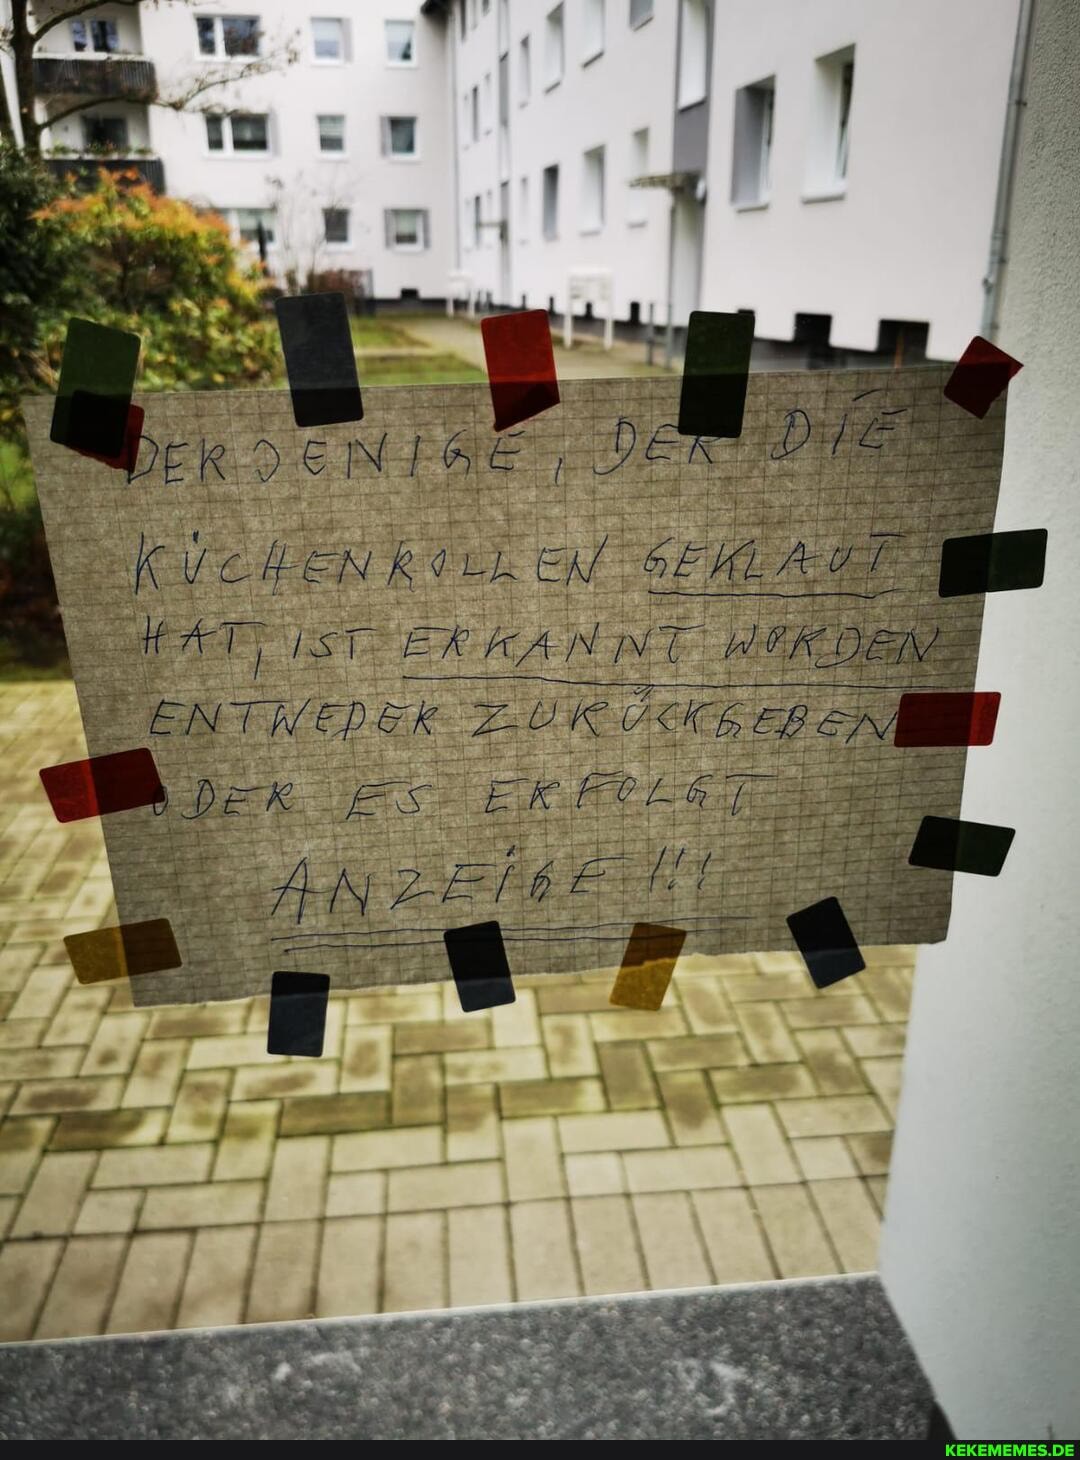 DERJENIGE, DER DIE
KÜCHENROLLEN GEKLAUT
HAT, IST ERKANNT WORDEN
ENTWEDER ZURÜCKGEBEN
ODER ES ERFOLGT
ANZEIGE!!!
KEKEMEMES.DE